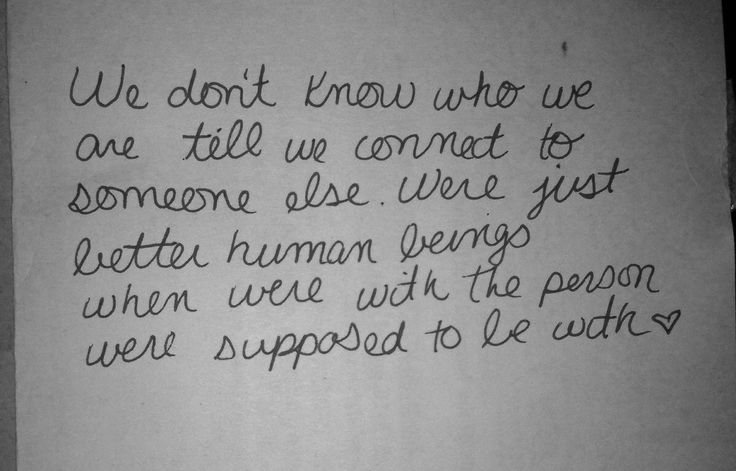 We don't know who we
are till we connect to
someone else. Were just
better human beings
when were with the person
were supposed to be with ♡